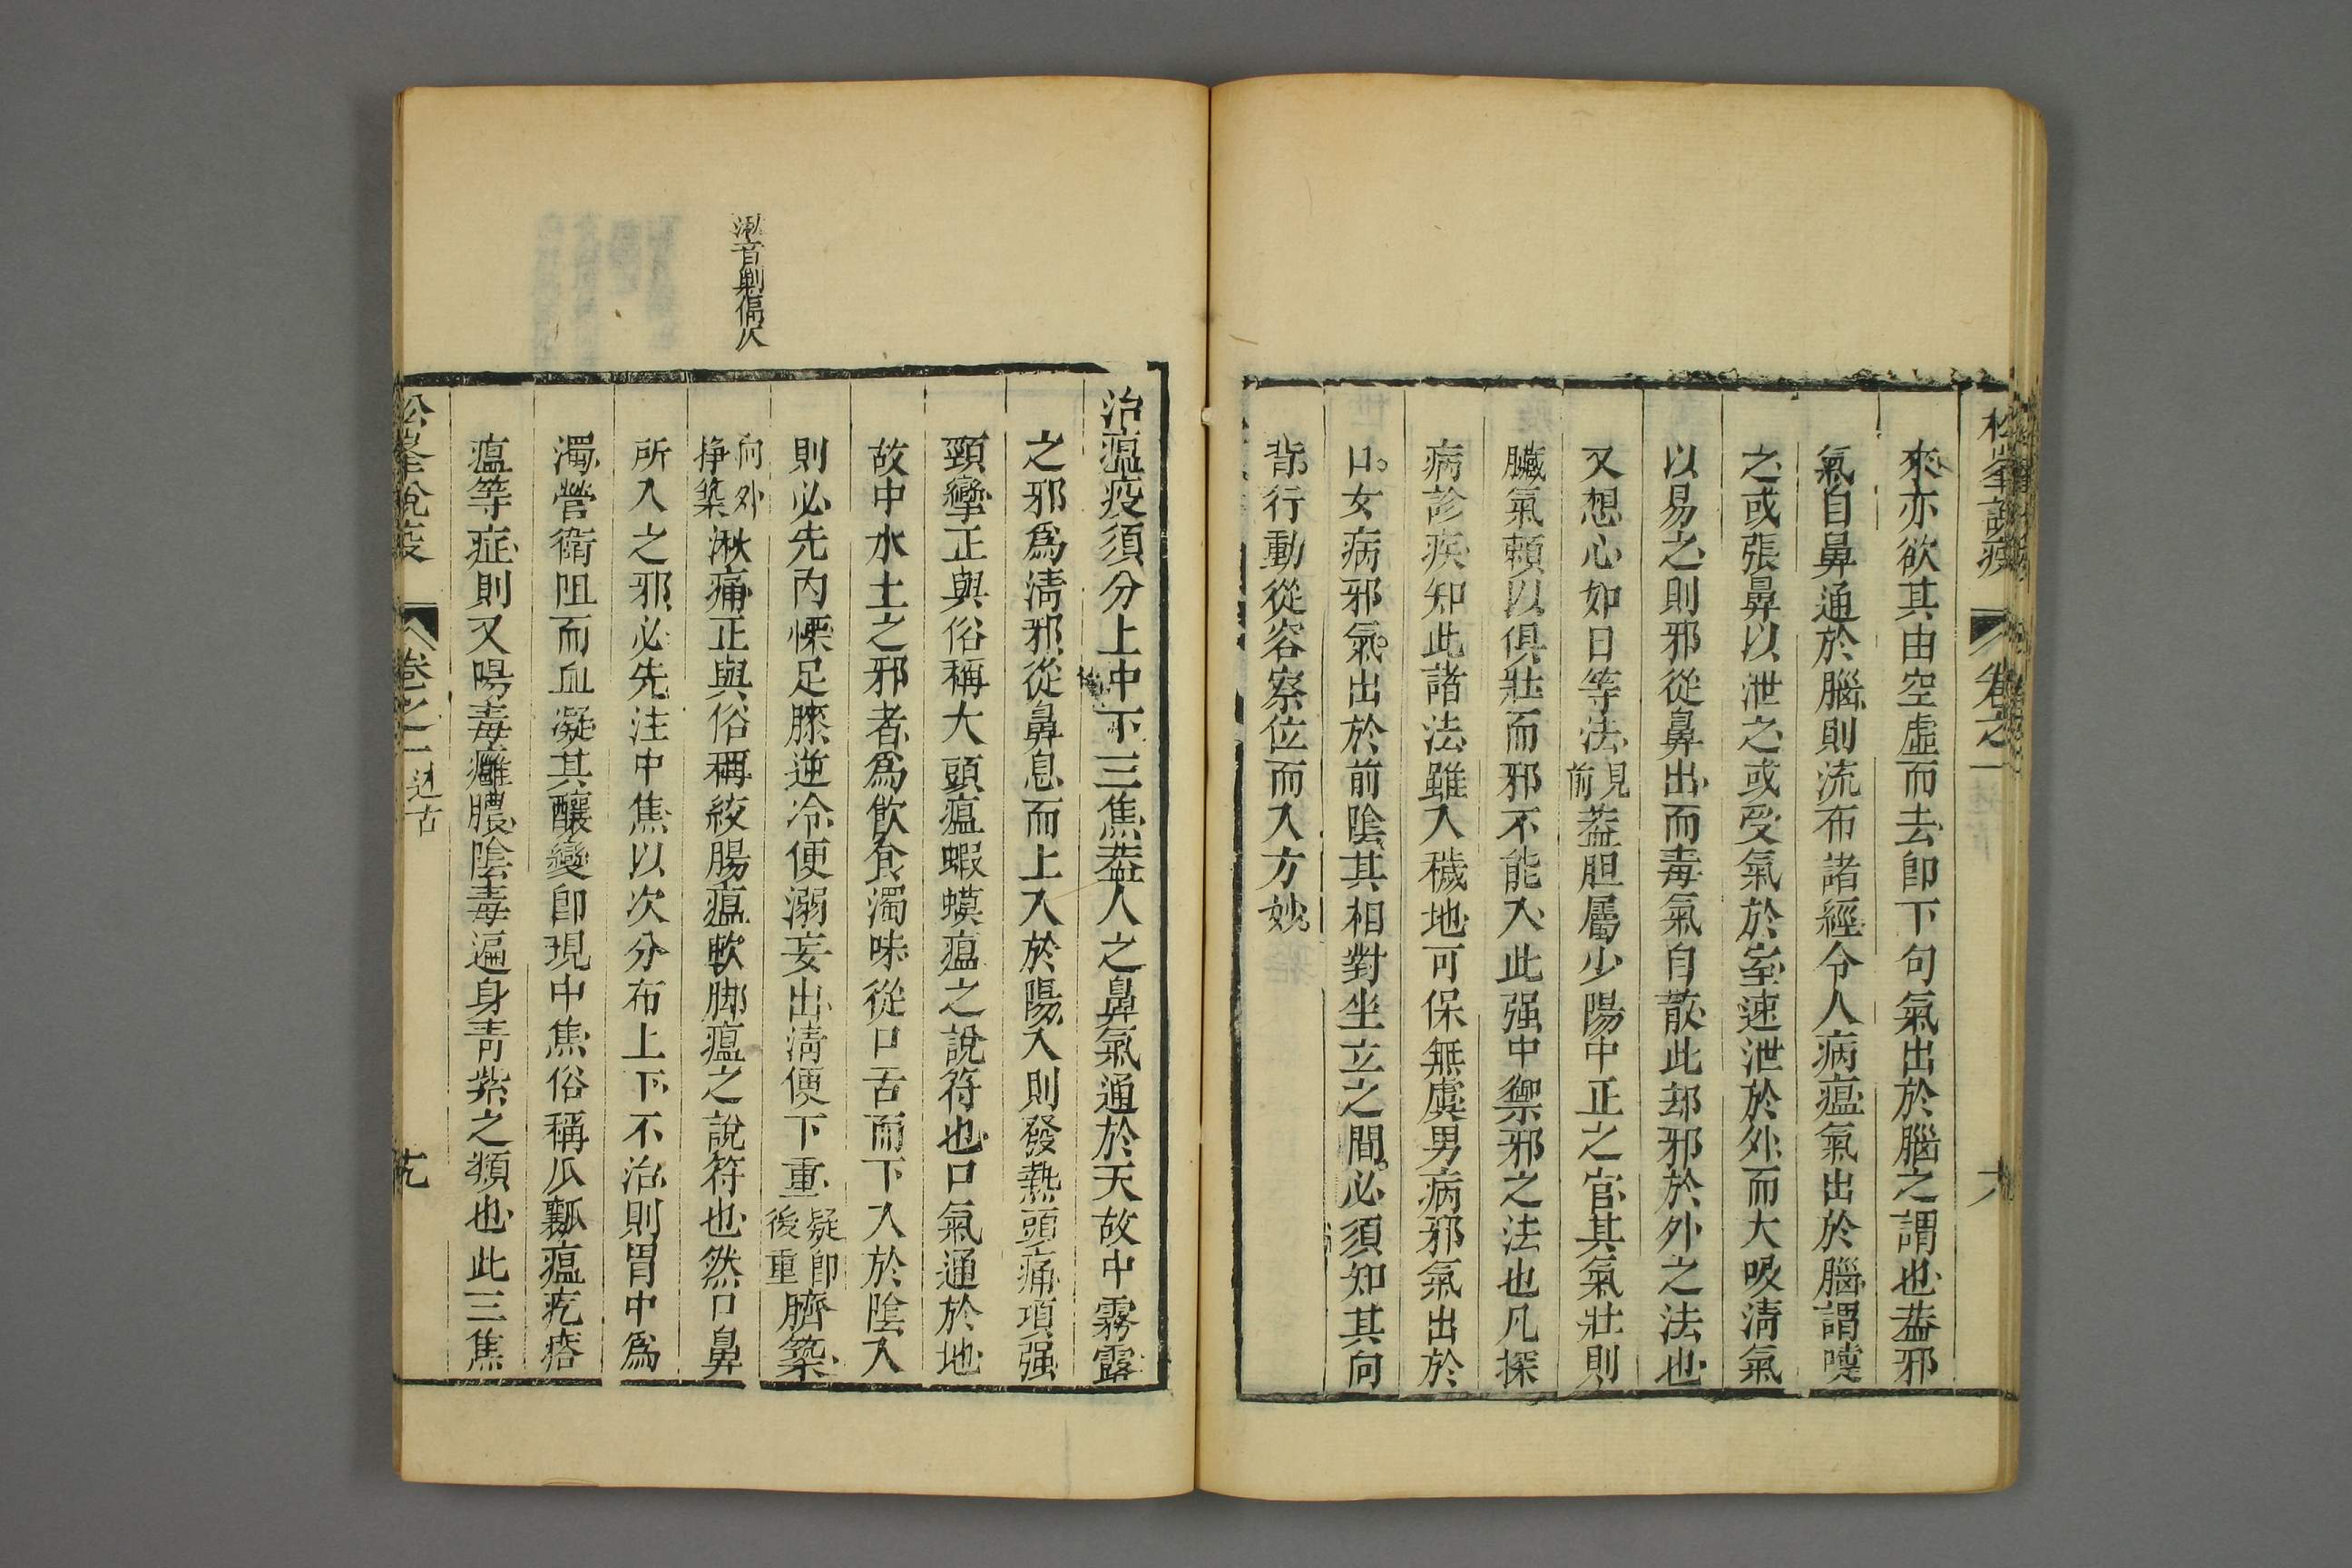 松峯說疫 卷之一
來亦欲其由空虛而去卽下句氣出於腦之謂也葢邪
氣自鼻通於腦則流布諸經令人病瘟氣出於腦謂嚏
之或張鼻以泄之或受氣於室速泄於外而大吸清氣
以易之則邪從鼻出而毒氣自散此却邪於外之法也
又想心如日等法見前葢胆屬少陽中正之官其氣壯則
臟氣賴以俱壯而邪不能入此强中禦邪之法也凡探
病診疾知此諸法雖入穢地可保無虞男病邪氣出於
口女病邪氣出於前陰其相對坐立之間必須知其向
背行動從容察位而入方妙
治瘟疫須分上中下三焦葢人之鼻氣通於天故中霧露
之邪爲清邪從鼻息而上入於陽入則發熱頭痛項强
頸攣正與俗稱大頭瘟蝦蟆瘟之說符也口氣通於地
故中水土之邪者爲飮食濁味從口舌而下入於陰入
則必先內慄足膝逆冷便溺妄出清便下重疑卽後重臍築
向外掙築湫痛正與俗稱絞腸瘟軟脚瘟之說符也然口鼻
所入之邪必先注中焦以次分布上下不治則胃中爲
濁營衛阻而血凝其釀變卽現中焦俗稱瓜瓤瘟疙瘩
瘟等症則又陽毒癰膿陰毒遍身青紫之類也此三焦
湫音剿偏仄
松峯說疫 卷之一 述古